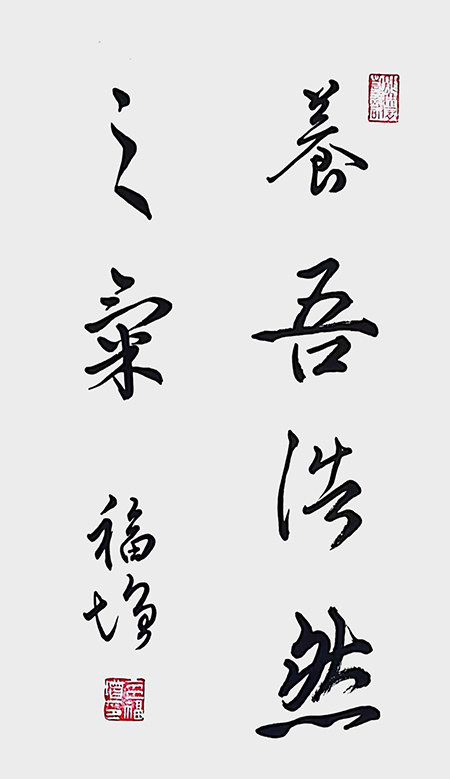 養吾浩然
之氣
福增